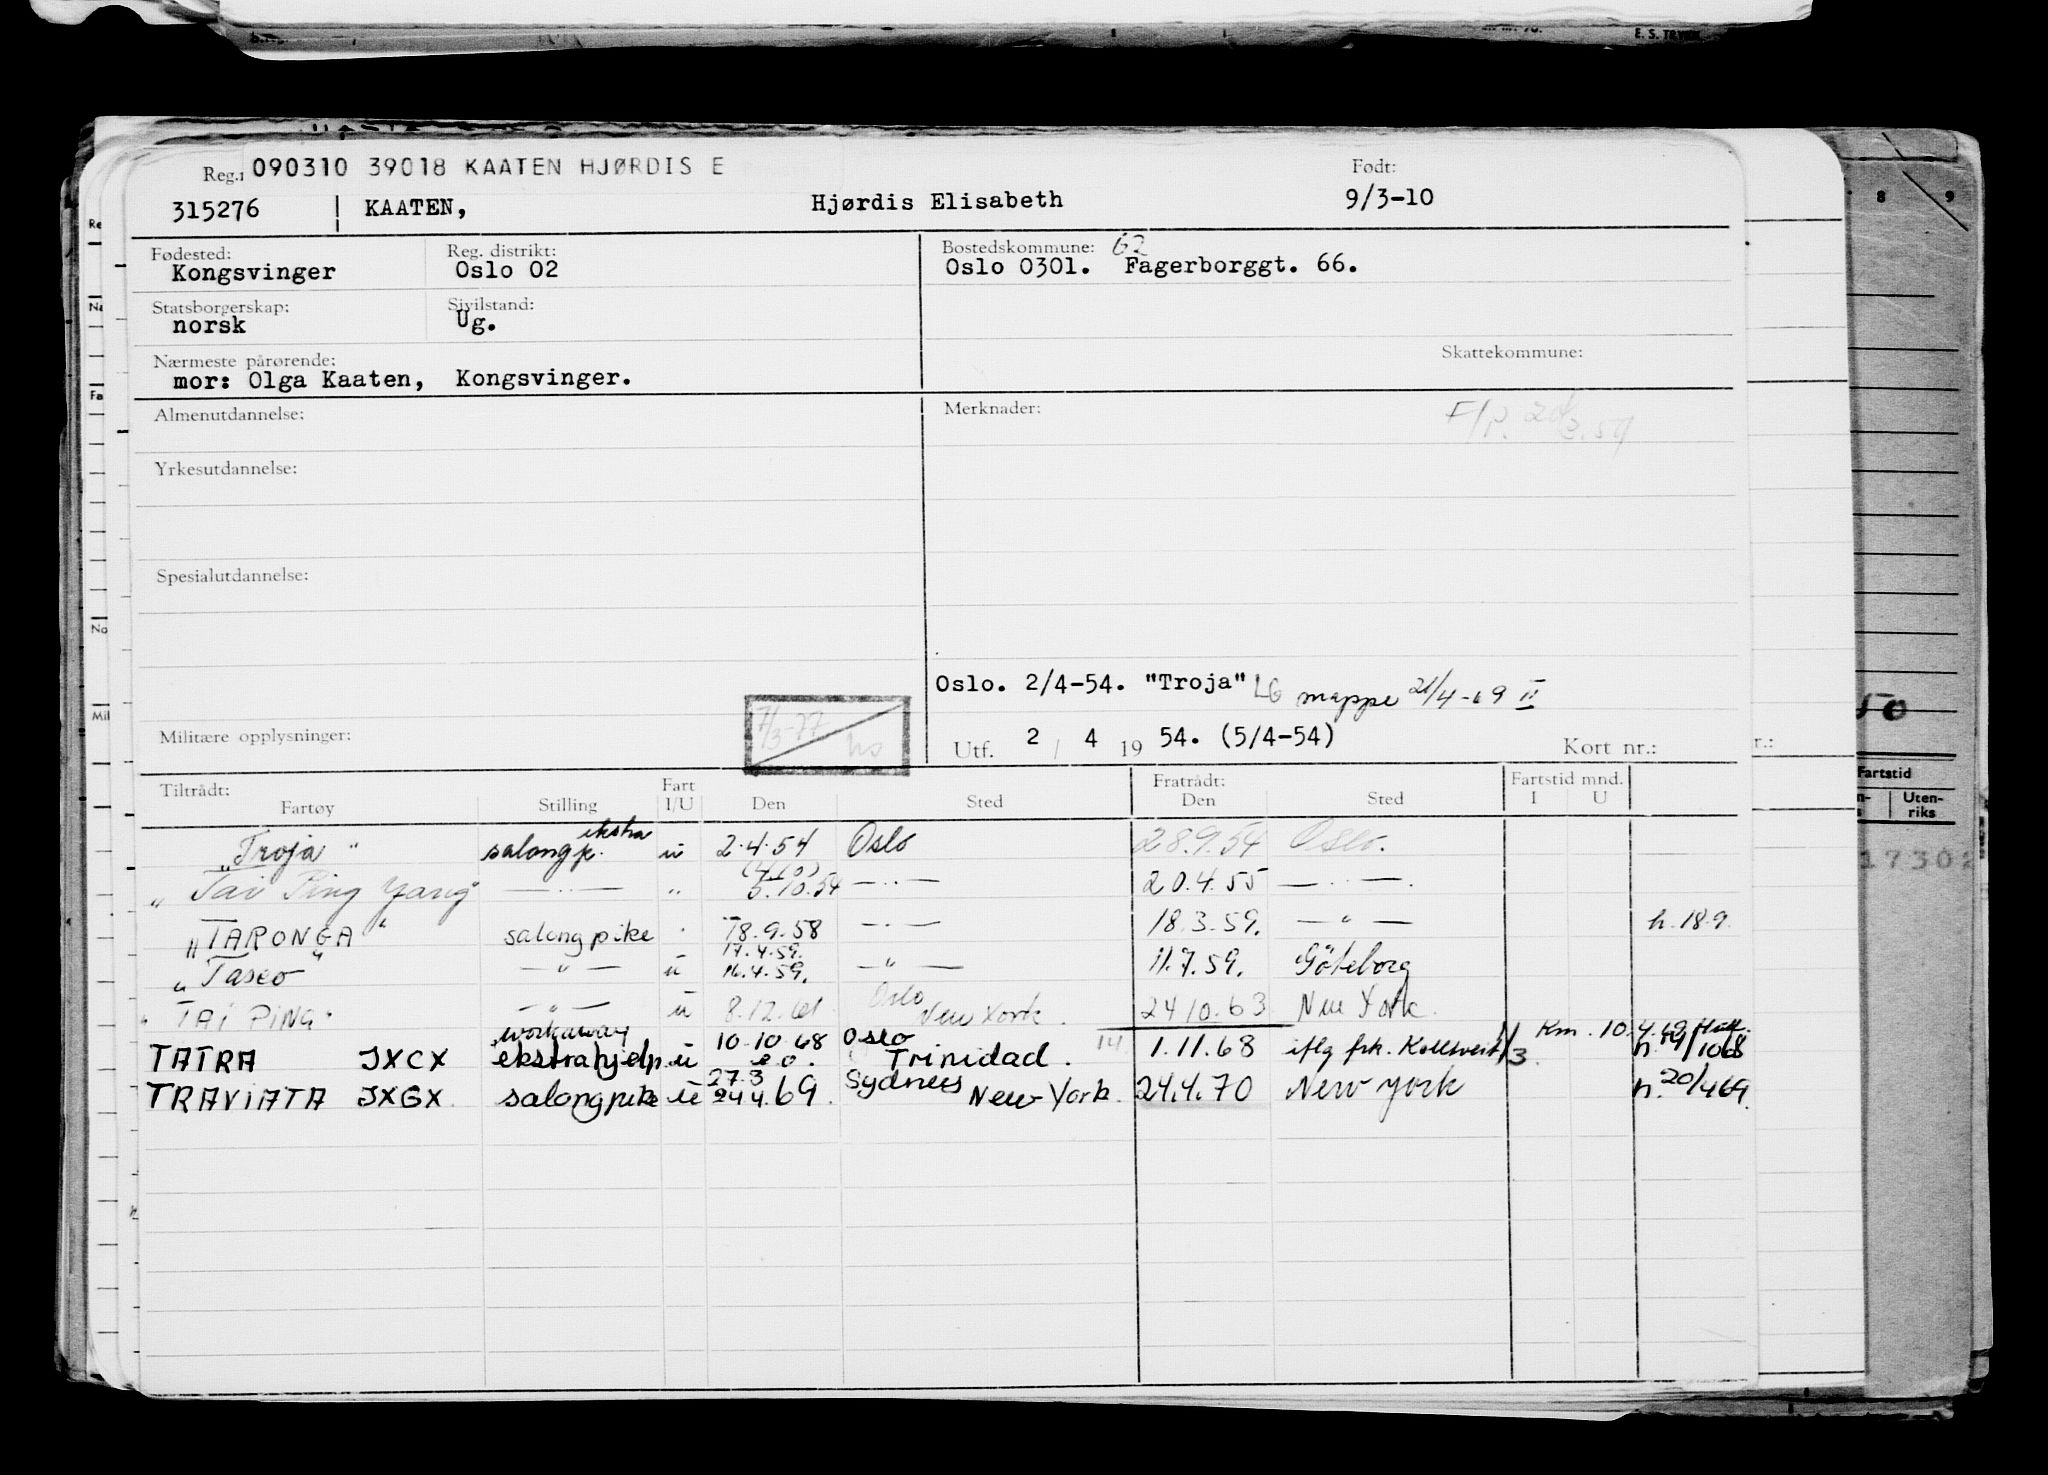 E. S.
Reg.
090310 39018 KAATEN HJØRDIS E
Født:
315276 KAATEN, Hjørdis Elisabeth 9/3-10
Fødested: Reg. distrikt: Bostedskommune: 62
Kongsvinger Oslo 02 Oslo 0301. Fagerborggt. 66.
Statsborgerskap: Sivilstand:
norsk Ug.
Nærmeste pårørende: Skattekommune:
mor: Olga Kaaten, Kongsvinger.
Almenutdannelse: Merknader:
Yrkesutdannelse:
Spesialutdannelse:
Oslo. 2/4-54. "Troja" LG mappe 21/4-69
Militære opplysninger: 7/3-77
Utf. 2 / 4 19 54. (5/4-54) Kort nr.:
Tiltrådt: Fart Fratrådt: Fartstid mnd.
Fartøy Stilling I/U Den Sted Den Sted I U
ekstra
"Troja" salongp. u 2.4.54 Oslo 28.9.54 Oslo.
"Tai Ping Yang" — " — " 5.10.54 — " — 20.4.55 — " —.
"TARONGA" salongpike 18.9.58 — " — 18.3.59. — " — h. 18.9.
17.4.59.
"Taseo" — " — u 16.4.59. — " — 11.7.59. Göteborg
Oslo
"TAI PING" — " — u 8.12.61 New York. 24 10.63 New York.
workaway 10.10.68 Oslo Km. 10.4.69
TATRA JXCX ekstrahjelp u Trinidad. 1.11.68 iflg frk. Kollsveit
27.3 Sydney
TRAVIATA JXGX. salongpike u 24.4.69. New York. 24.4.70 New York h. 20/4 69.
8 9
50
Fartstid
Uten-
riks
17302